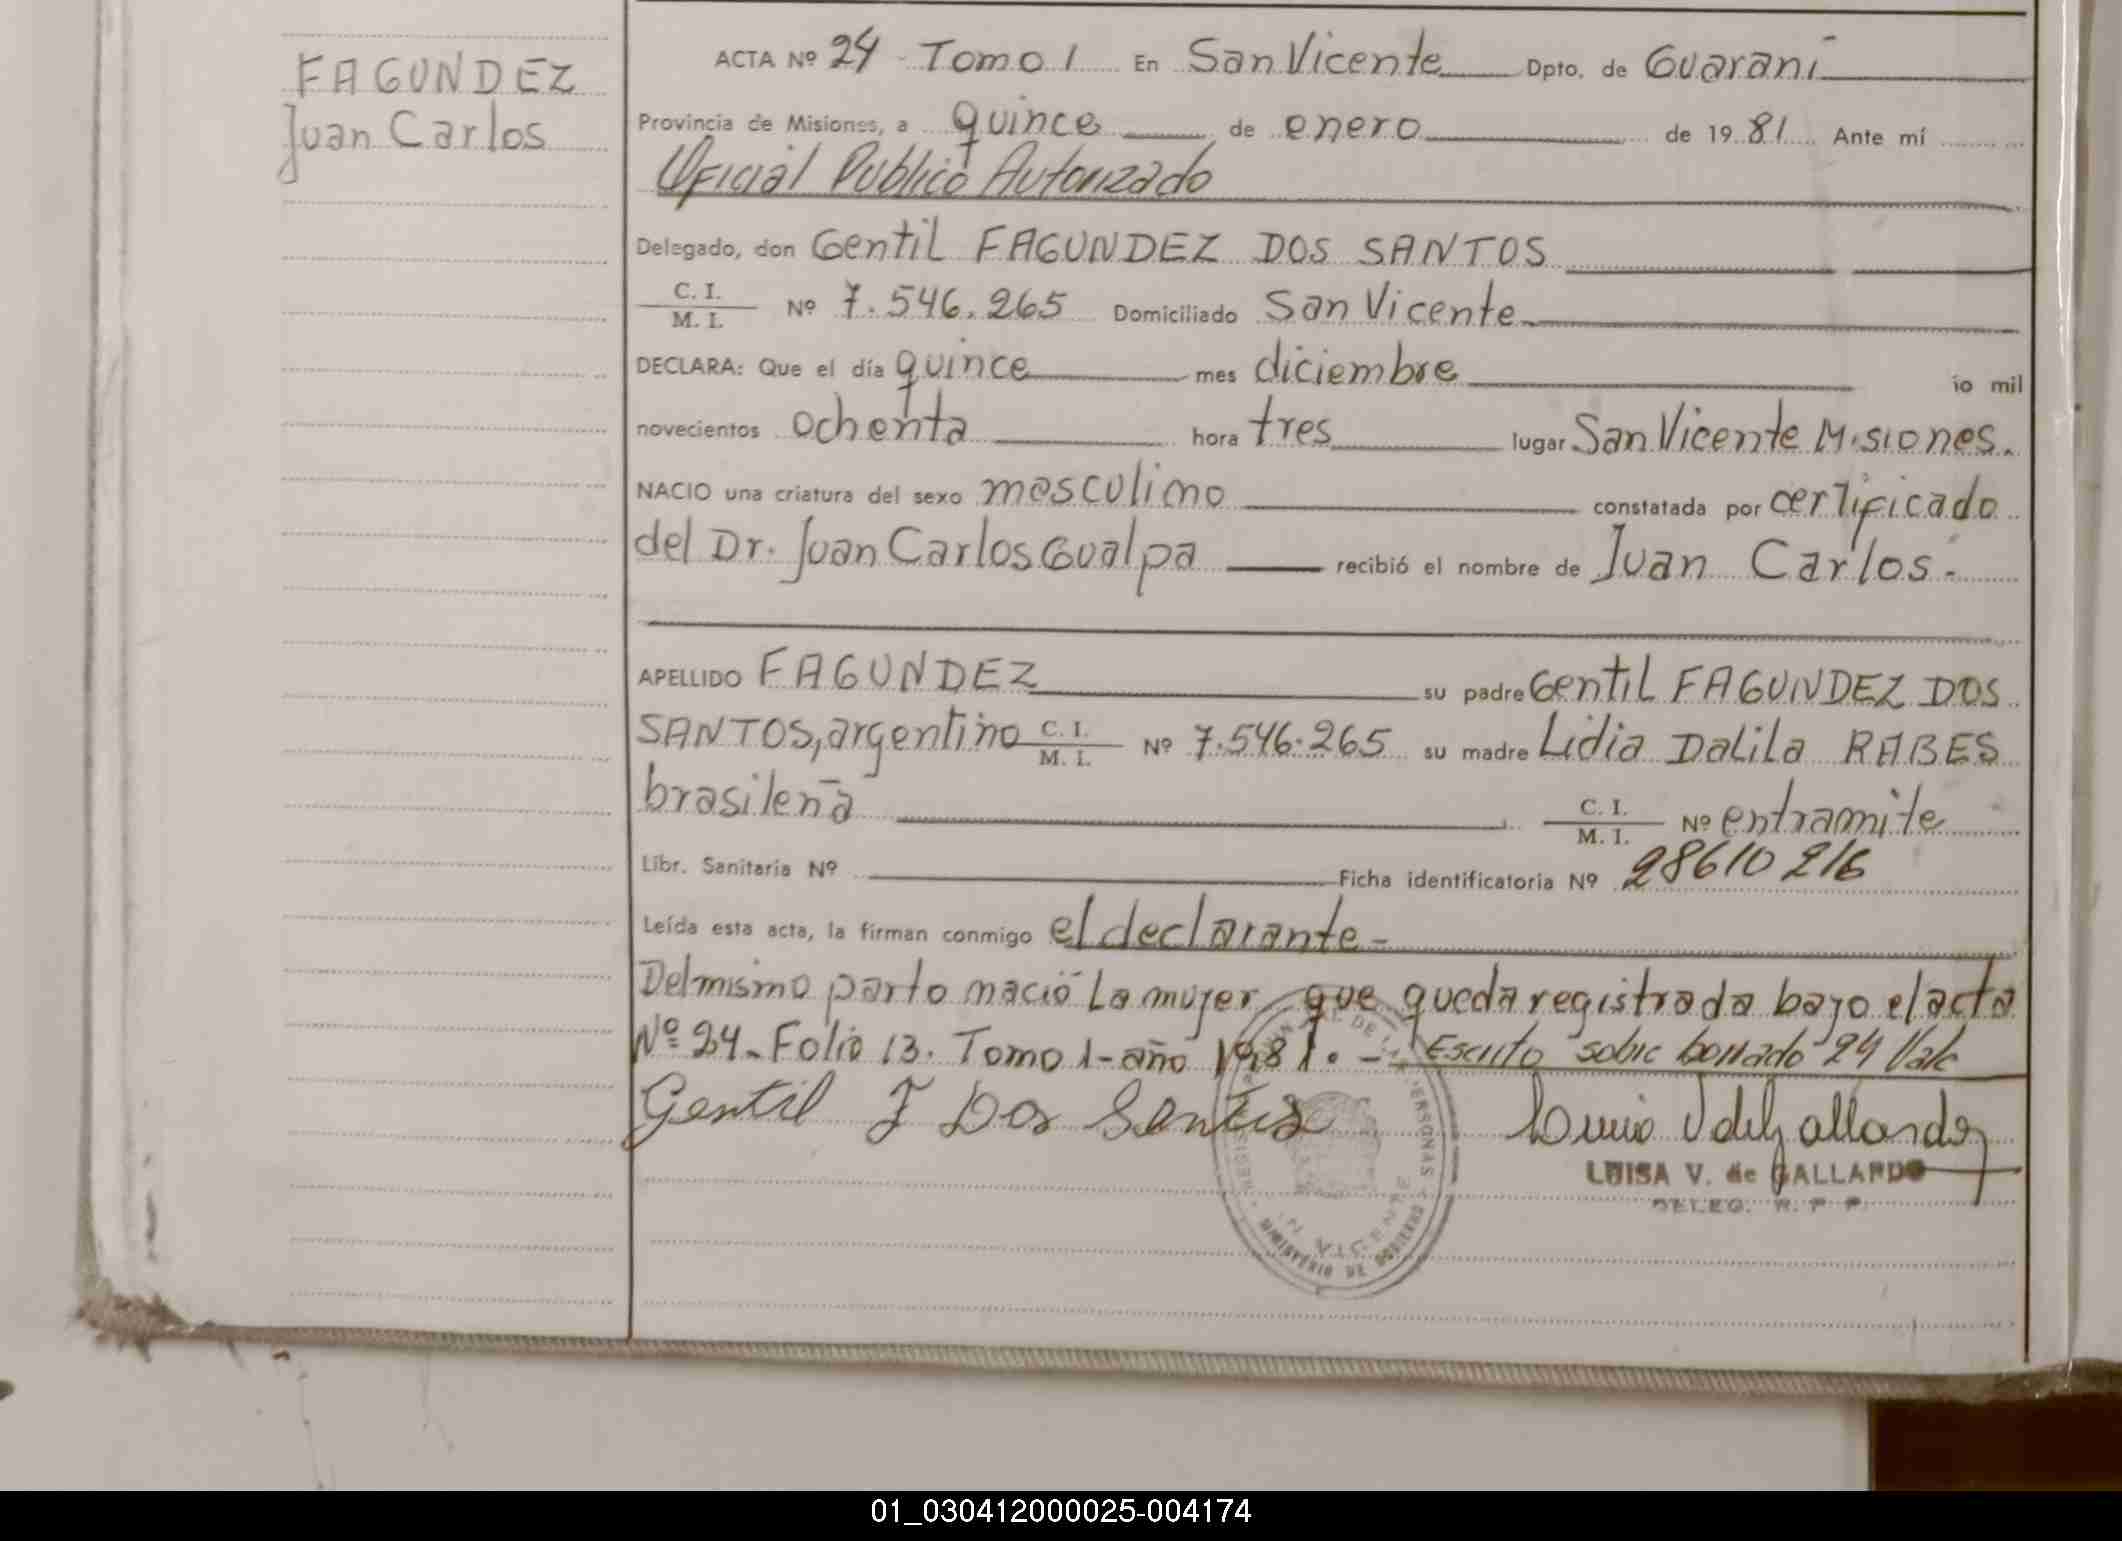 FAGUNDEZ
Juan Carlos
ACTA Nº 24 Tomo 1 En San Vicente Dpto. de Guaraní
Provincia de Misiones, a quince de enero de 1981 Ante mí
Oficial Publico Autorizado
Delegado, don Gentil FAGUNDEZ DOS SANTOS
C. I. / M. I. Nº 7.546.265 Domiciliado San Vicente
DECLARA: Que el día quince mes diciembre io mil
novecientos ochenta hora tres lugar San Vicente Misiones.
NACIO una criatura del sexo masculino constatada por certificado
del Dr. Juan Carlos Gualpa recibió el nombre de Juan Carlos.-
APELLIDO FAGUNDEZ su padre Gentil FAGUNDEZ DOS
SANTOS, argentino C. I. / M. I. Nº 7.546.265 su madre Lidia Dalila RABES
brasileña C. I. / M. I. Nº entramite
Libr. Sanitaria Nº Ficha identificatoria Nº 28610216
Leída esta acta, la firman conmigo el declarante-
Del mismo parto nació la mujer que queda registrada bajo el acta
Nº 24. Folio 13. Tomo 1-año 1981.- Escrito sobre borrado 24 Vale
Gentil F Dos Santos
Luisa V de Gallardo
LUISA V. de GALLARDO
DELEG. R. P. P.
MINISTERIO DE GOBIERNO
PERSONAS
N VICENTE
01_030412000025-004174